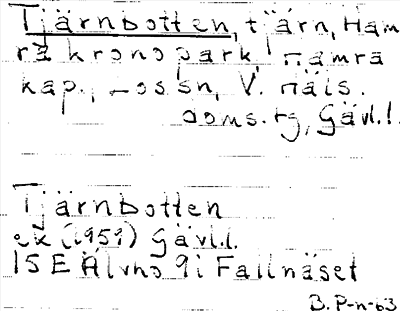 Tjärnbotten, tjärn, Ham
ra kronopark, Hamra
kap., Los sn, V. Häls.
doms.rg, Gävl.l.
Tjärnbotten
ek (1959) Gävl.l.
15 E Älvho 9i Fallnäset
B. P-n-63